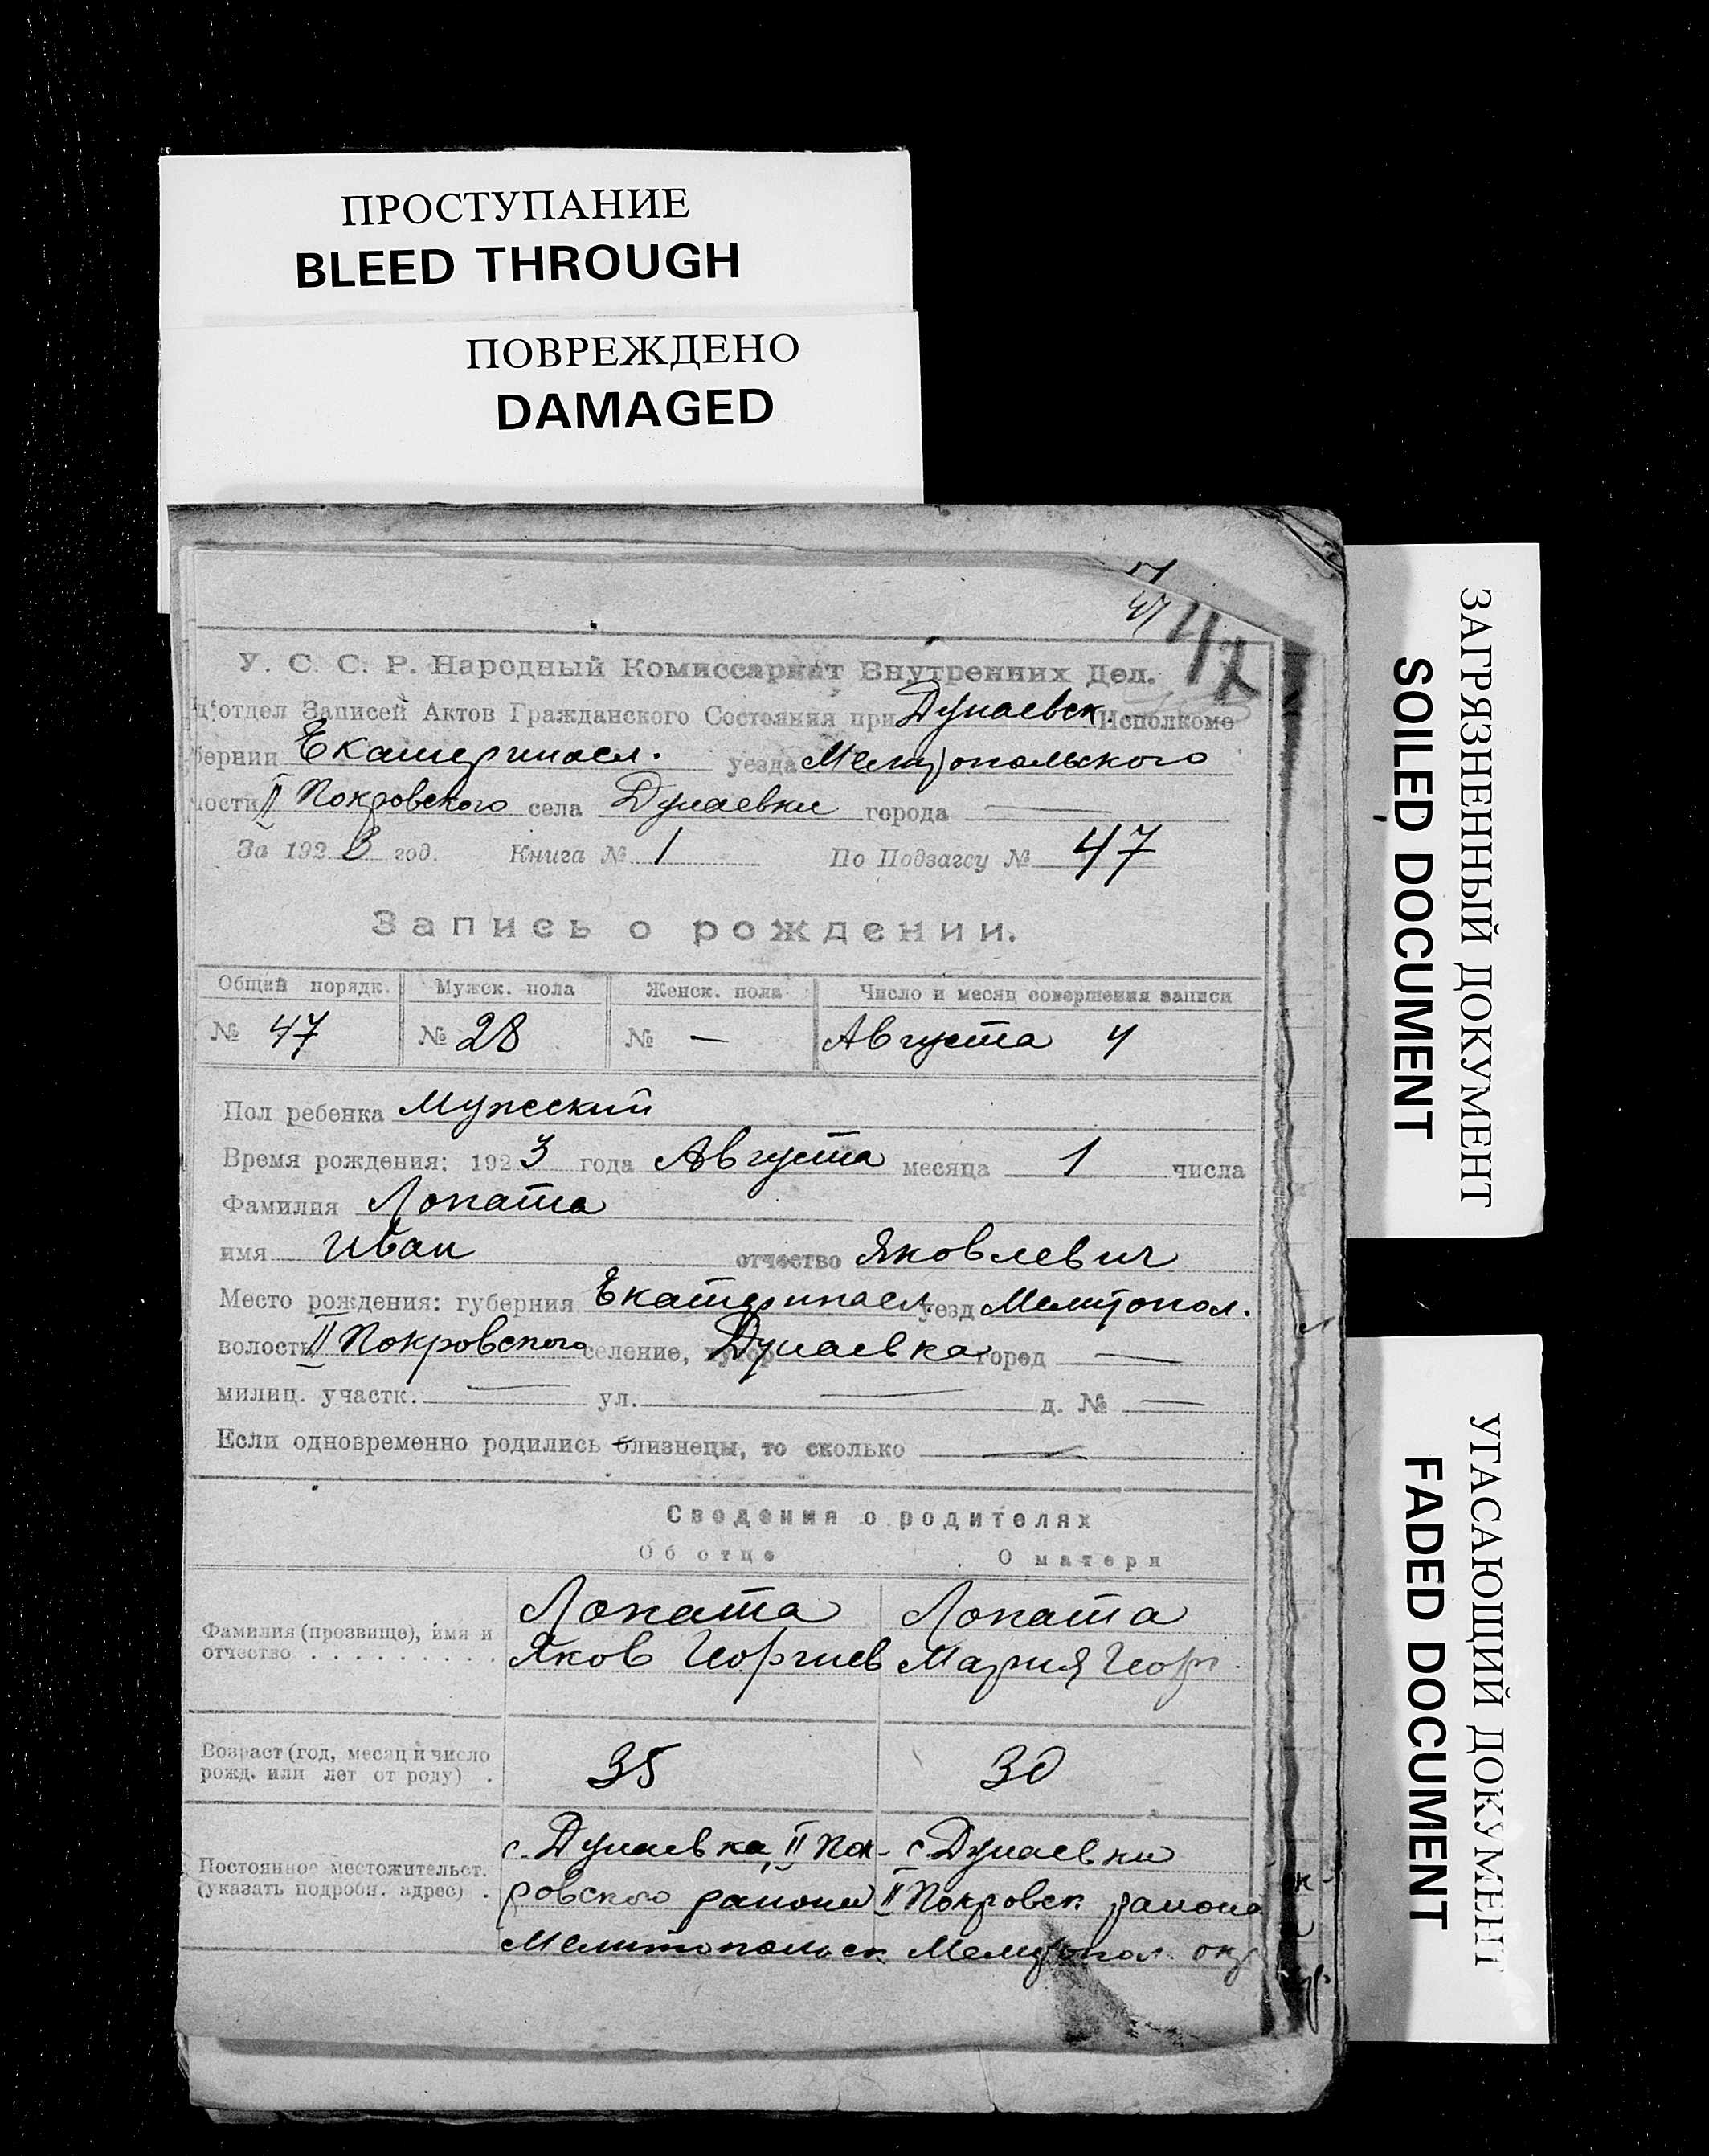 ПРОСТУПАНИЕ
BLEED THROUGH
ПОВРЕЖДЕНО
DAMAGED
47
47
У. С. С. Р. Народный Комиссариат Внутренних Дел.
отдел Записей Актов Гражданского Состояния при Дунаевск. Исполкоме
бернии Екатериносл. уезда Мелитопольского
ости II Покровского села Дунаевки города —
За 1923 год. Книга № 1 По Подзагсу № 47
Запись о рождении.
Общий порядк. Мужск. пола Женск. пола Число и месяц совершения записи
№ 47 № 28 № — Августа 4
Пол ребенка Мужеский
Время рождения: 1923 года Августа месяца 1 числа
Фамилия Лопата
имя Иван отчество Яковлевич
Место рождения: губерния Екатериносл. уезд Мелитопол.
волость II Покровского селение, хутор Дунаевка город —
милиц. участк. — ул. — д. № —
Если одновременно родились близнецы, то сколько —
Сведения о родителях
Об отце О матери
Фамилия (прозвище), имя и отчество . . . . . . . . .
Лопата Лопата
Яков Георгиев Мария Георг.
Возраст (год, месяц и число рожд. или лет от роду) . 35 30
Постоянное местожительст. (указать подробн. адрес) .
с. Дунаевка, II Пок- с. Дунаевки
ровского района II Покровск района
Мелитопольск Мелитопол. окр
ЗАГРЯЗНЕННЫЙ ДОКУМЕНТ
SOILED DOCUMENT
УГАСАЮЩИЙ ДОКУМЕНТ
FADED DOCUMENT